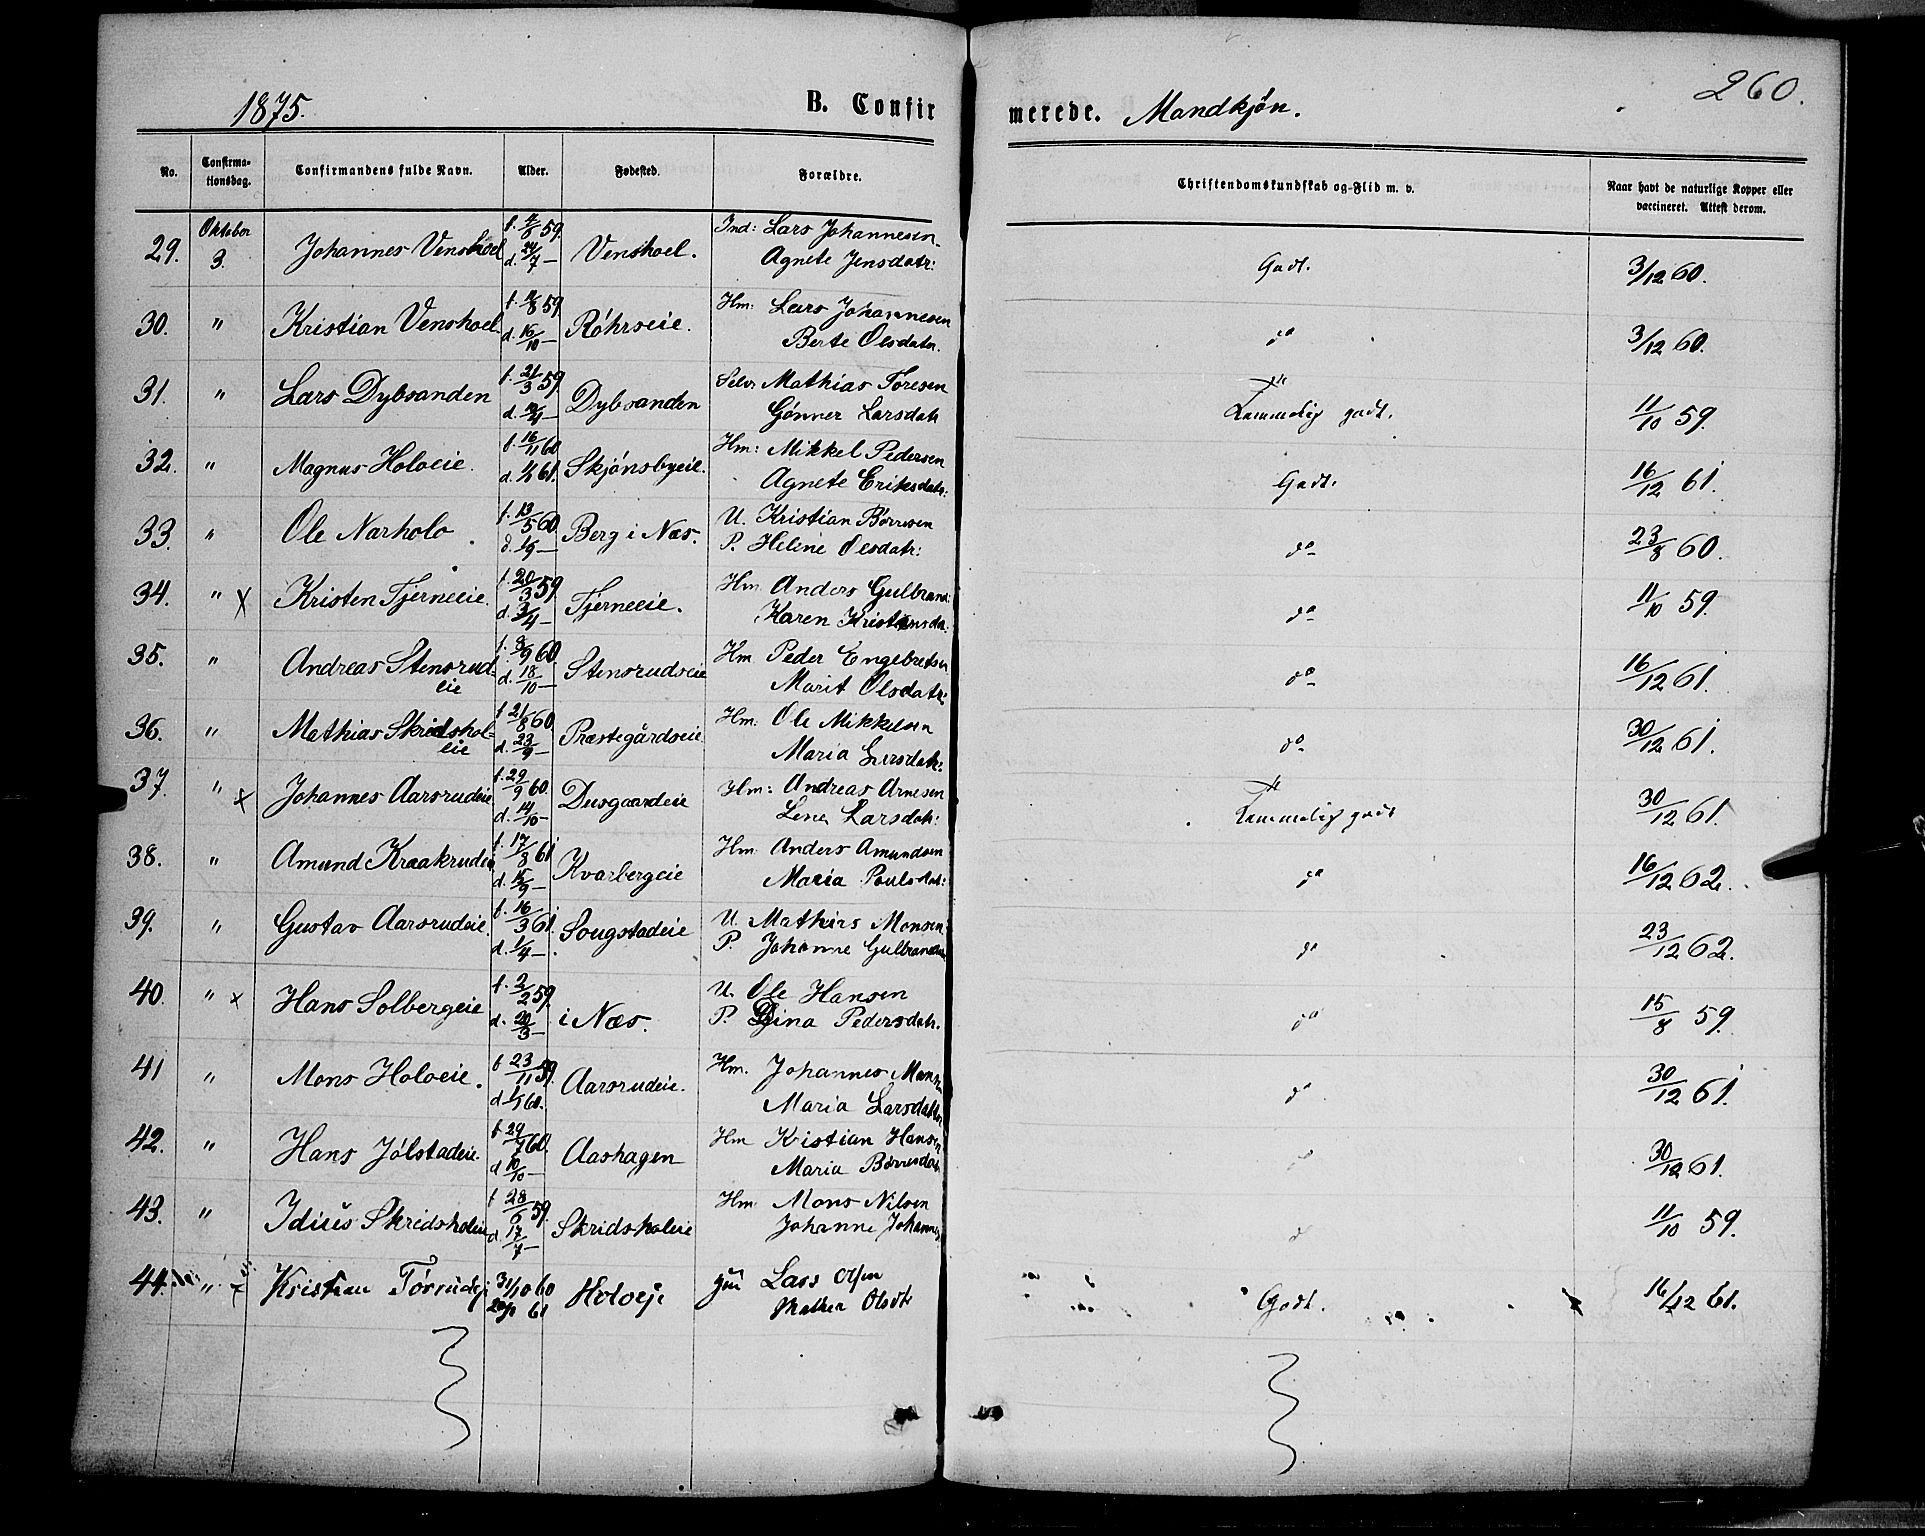 1875.
B. Confirmerede. Mandkjøn.
260.
No. Confirmationsdag. Confirmandens fulde Navn. Alder. Fødested. Forældre. Christendomskundskab og Flid m. v. Naar havt de naturlige Kopper eller vaccineret. Attest derom.
29. Oktober 3. Johannes Venskoel f. 59 d. 24/7 — Venskoel. Ind: Lars Johannesen Godt. 3/12 60.
Agnete Jensdatr:
30. " Kristian Venskoel f. 4/8 59 d. 16/10 — Røhrseie. Hm: Lars Johannesen do 3/12 60.
Berte Olsdatr.
31. " Lars Dybsanden f. 21/3 59 d. /4 — Dybsanden Selv: Mathias Toresen Temmelig godt. 11/10 59.
Gønner Larsdatr
32. " Magnus Holoeie. f. 16/11 60 d. 1/1 61. Skjønsbyeie. Hm: Mikkel Pedersen Godt. 16/12 61.
Agnete Eriksdatr:
33. " Ole Narholo f. 13/5 60 d. 1/9 — Berg i Næs. U. Kristian Børresen do 23/8 60.
P. Heline Olsdatr:
34. " x Kristen Tjerneeie. f. 20/3 59. d. 3/4 — Tjerneeie. Hm. Anders Gulbrand: do 11/10 59.
Karen Kristensda:
35. " Andreas Stensrud= f. 8/9 60. d. 18/10 — Stensrudseie Hm Peder Engebretsen do 16/12 61.
eie Marit Olsdatr:
36. " Mathias Skridshol= f. 21/8 60 d. 23/9 — Præstegårdseie Hm: Ole Mikkelsen do 30/12 61.
eie Maria Larsdatr:
37. " x Johannes Aarsrudeie f. 29/9 60. d. 14/10 — Dusgaardeie Hm: Andreas Arnesen Temmelig godt 30/12 61.
Lene Larsdatr:
38. " Amund Kraakrudeie f. 17/8 61 d. 15/9 — Kvarbergeie Hm. Anders Amundsen do 16/12 62.
Maria Poulsdat:
39. " Gustav Aarsrudeie. f. 16/3 61. d. 1/4 — Sougstadeie U. Mathias Monsen do 23/12 62.
P. Johanne Gulbrandsd
40. " x Hans Solbergeie f. 2/2 59. d. 20/3 — i Næs. U. Ole Hansen do 15/8 59.
P. Dina Pedersdatr.
41 " Mons Holoeie. f. 23/11 59. d. 1/1 60. Aarsrudeie. Hm. Johannes Monsen do 30/12 61.
Maria Larsdatter
42. " Hans Jølstadeie. f. 29/7 60. d. 10/10 — Aashagen Hm Kristian Hansen do 30/12 61.
Maria Børresdat
43. " Idius Skridsholeie f. 28/6 59. d. 17/7 — Skridsholeie Hm. Mons Nilsen d 11/10 59.
Johanne Johannes
44. " Kristian Tørrudej 31/10 60 61 Holoej. Lars Olsen Godt. 16/12 61.
Mathea Olsdt